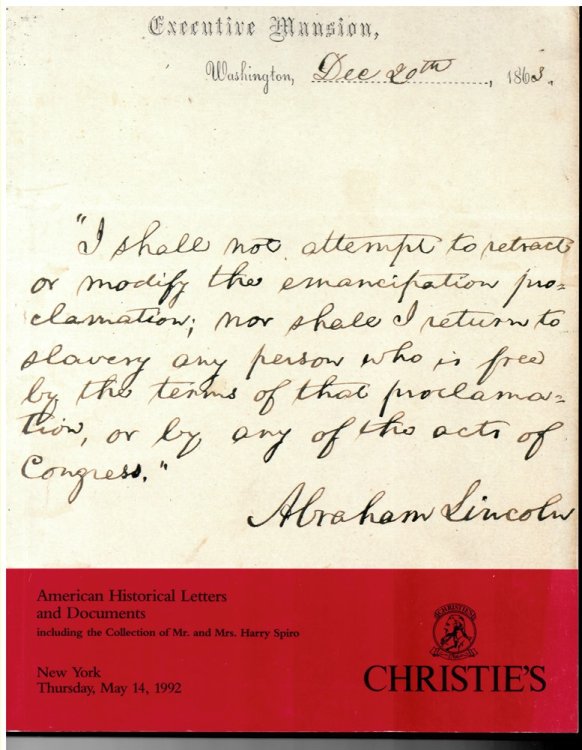 Executive Mansion,
Washington, Dec 20th, 1863.
"I shall not attempt to retract
or modify the emancipation pro=
clamation; nor shall I return to
slavery any person who is free
by the terms of that proclama=
tion, or by any of the acts of
Congress."
Abraham Lincoln
American Historical Letters
and Documents
including the Collection of Mr. and Mrs. Harry Spiro
New York
Thursday, May 14, 1992
CHRISTIE'S
CHRISTIE'S